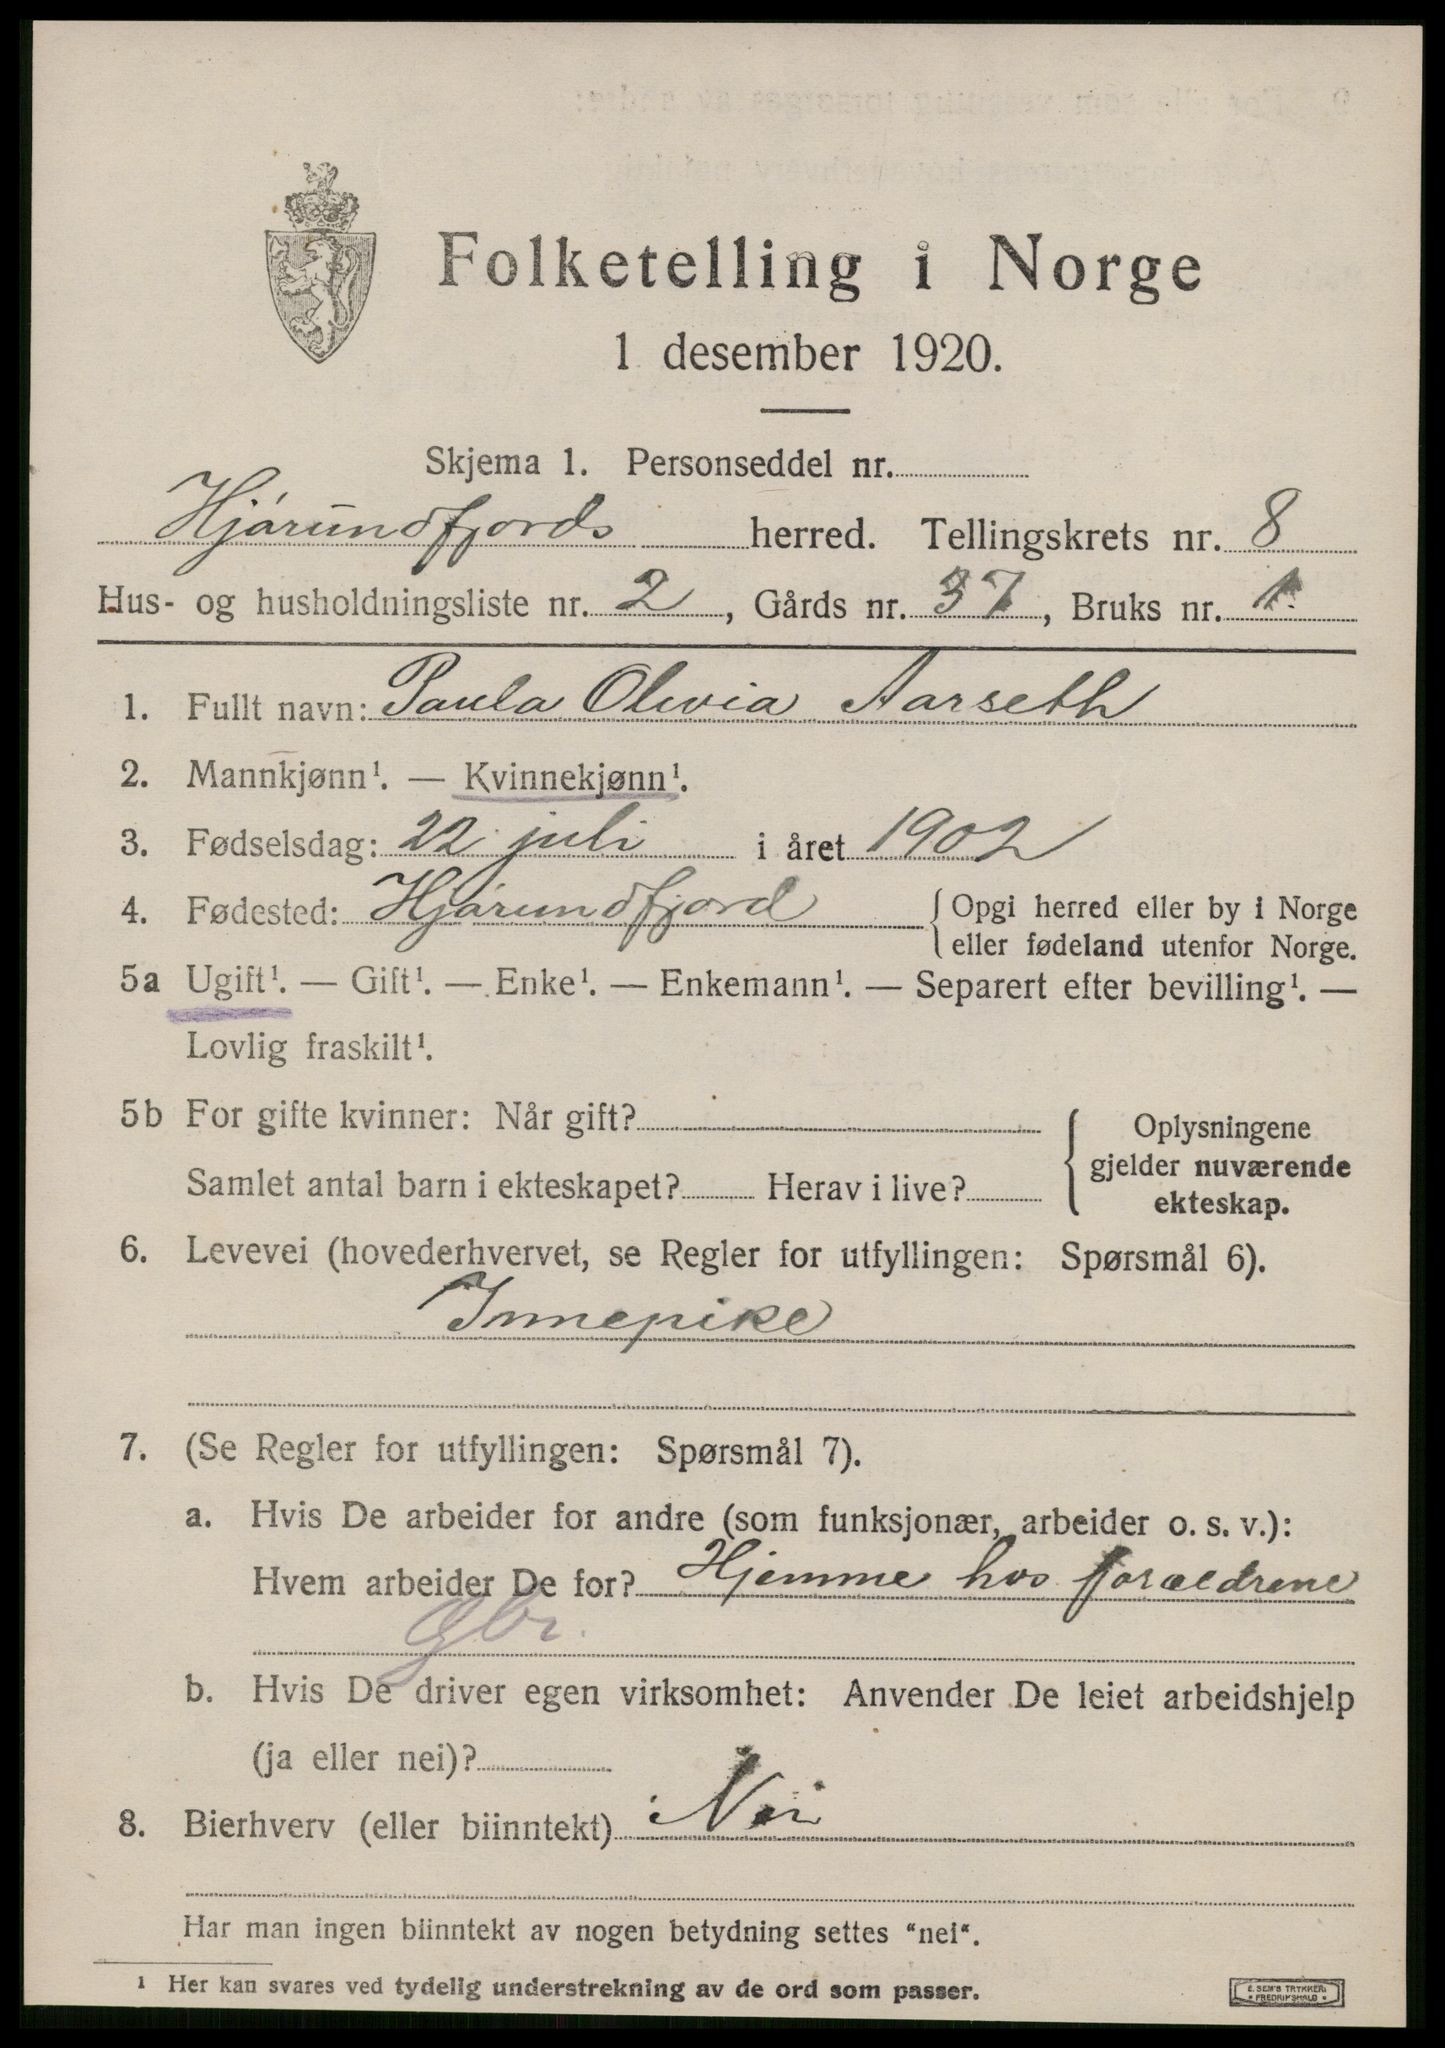 Folketelling i Norge
1 desember 1920.
Skjema 1. Personseddel nr.
Hjørundfjords herred. Tellingskrets nr. 8
Hus- og husholdningsliste nr. 2, Gårds nr. 37, Bruks nr. 1
1. Fullt navn: Paula Olivia Aarseth
2. Mannkjønn¹. — Kvinnekjønn¹.
3. Fødselsdag: 22 juli i året 1902
4. Fødested: Hjørundfjord {Opgi herred eller by i Norge
eller fødeland utenfor Norge.
5a Ugift¹. — Gift¹. — Enke¹. — Enkemann¹. — Separert efter bevilling¹. —
Lovlig fraskilt¹.
5b For gifte kvinner: Når gift? Oplysningene
gjelder nuværende
Samlet antal barn i ekteskapet? Herav i live?
ekteskap.
6. Levevei (hovederhvervet, se Regler for utfyllingen: Spørsmål 6).
Innepike
7. (Se Regler for utfyllingen: Spørsmål 7).
a. Hvis De arbeider for andre (som funksjonær, arbeider o. s. v.):
Hvem arbeider De for? Hjemme hos forældrene
Gbr.
b. Hvis De driver egen virksomhet: Anvender De leiet arbeidshjelp
(ja eller nei)?
8. Bierhverv (eller biinntekt) Nei
Har man ingen biinntekt av nogen betydning settes "nei".
1 Her kan svares ved tydelig understrekning av de ord som passer.
E. SEM'S TRYKKERI
• FREDRIKSHALD •